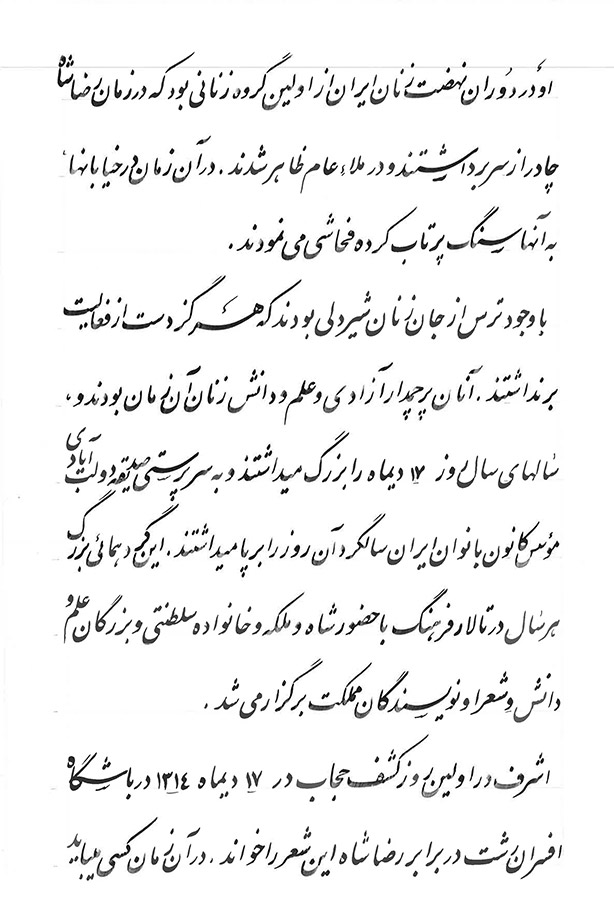 او در دوران نهضت زنان ایران از اولین گروه زنانی بود که در زمان رضا شاه
چادر از سر برداشتند و در ملاء عام ظاهر شدند . در آن زمان در خیابانها
به آنها سنگ پرتاب کرده فحاشی می نمودند .
با وجود ترس از جان زنان شیردلی بودند که هرگز دست از فعالیت
برنداشتند . آنان پرچمدار آزادی و علم و دانش زنان آن زمان بودند و ،
سالهای سال روز ۱۷ دیماه را بزرگ میداشتند و به سرپرستی صدیقه دولت آبادی
مؤسس کانون بانوان ایران سالگرد آن روز را برپا میداشتند . این گردهمائی بزرگ
هر سال در تالار فرهنگ با حضور شاه و ملکه و خانواده سلطنتی و بزرگان علم و
دانش و شعرا و نویسندگان مملکت برگزار می شد .
اشرف در اولین روز کشف حجاب در ۱۷ دیماه ۱۳۱٤ در باشگاه
افسران رشت در برابر رضا شاه این شعر را خواند . در آن زمان کسی